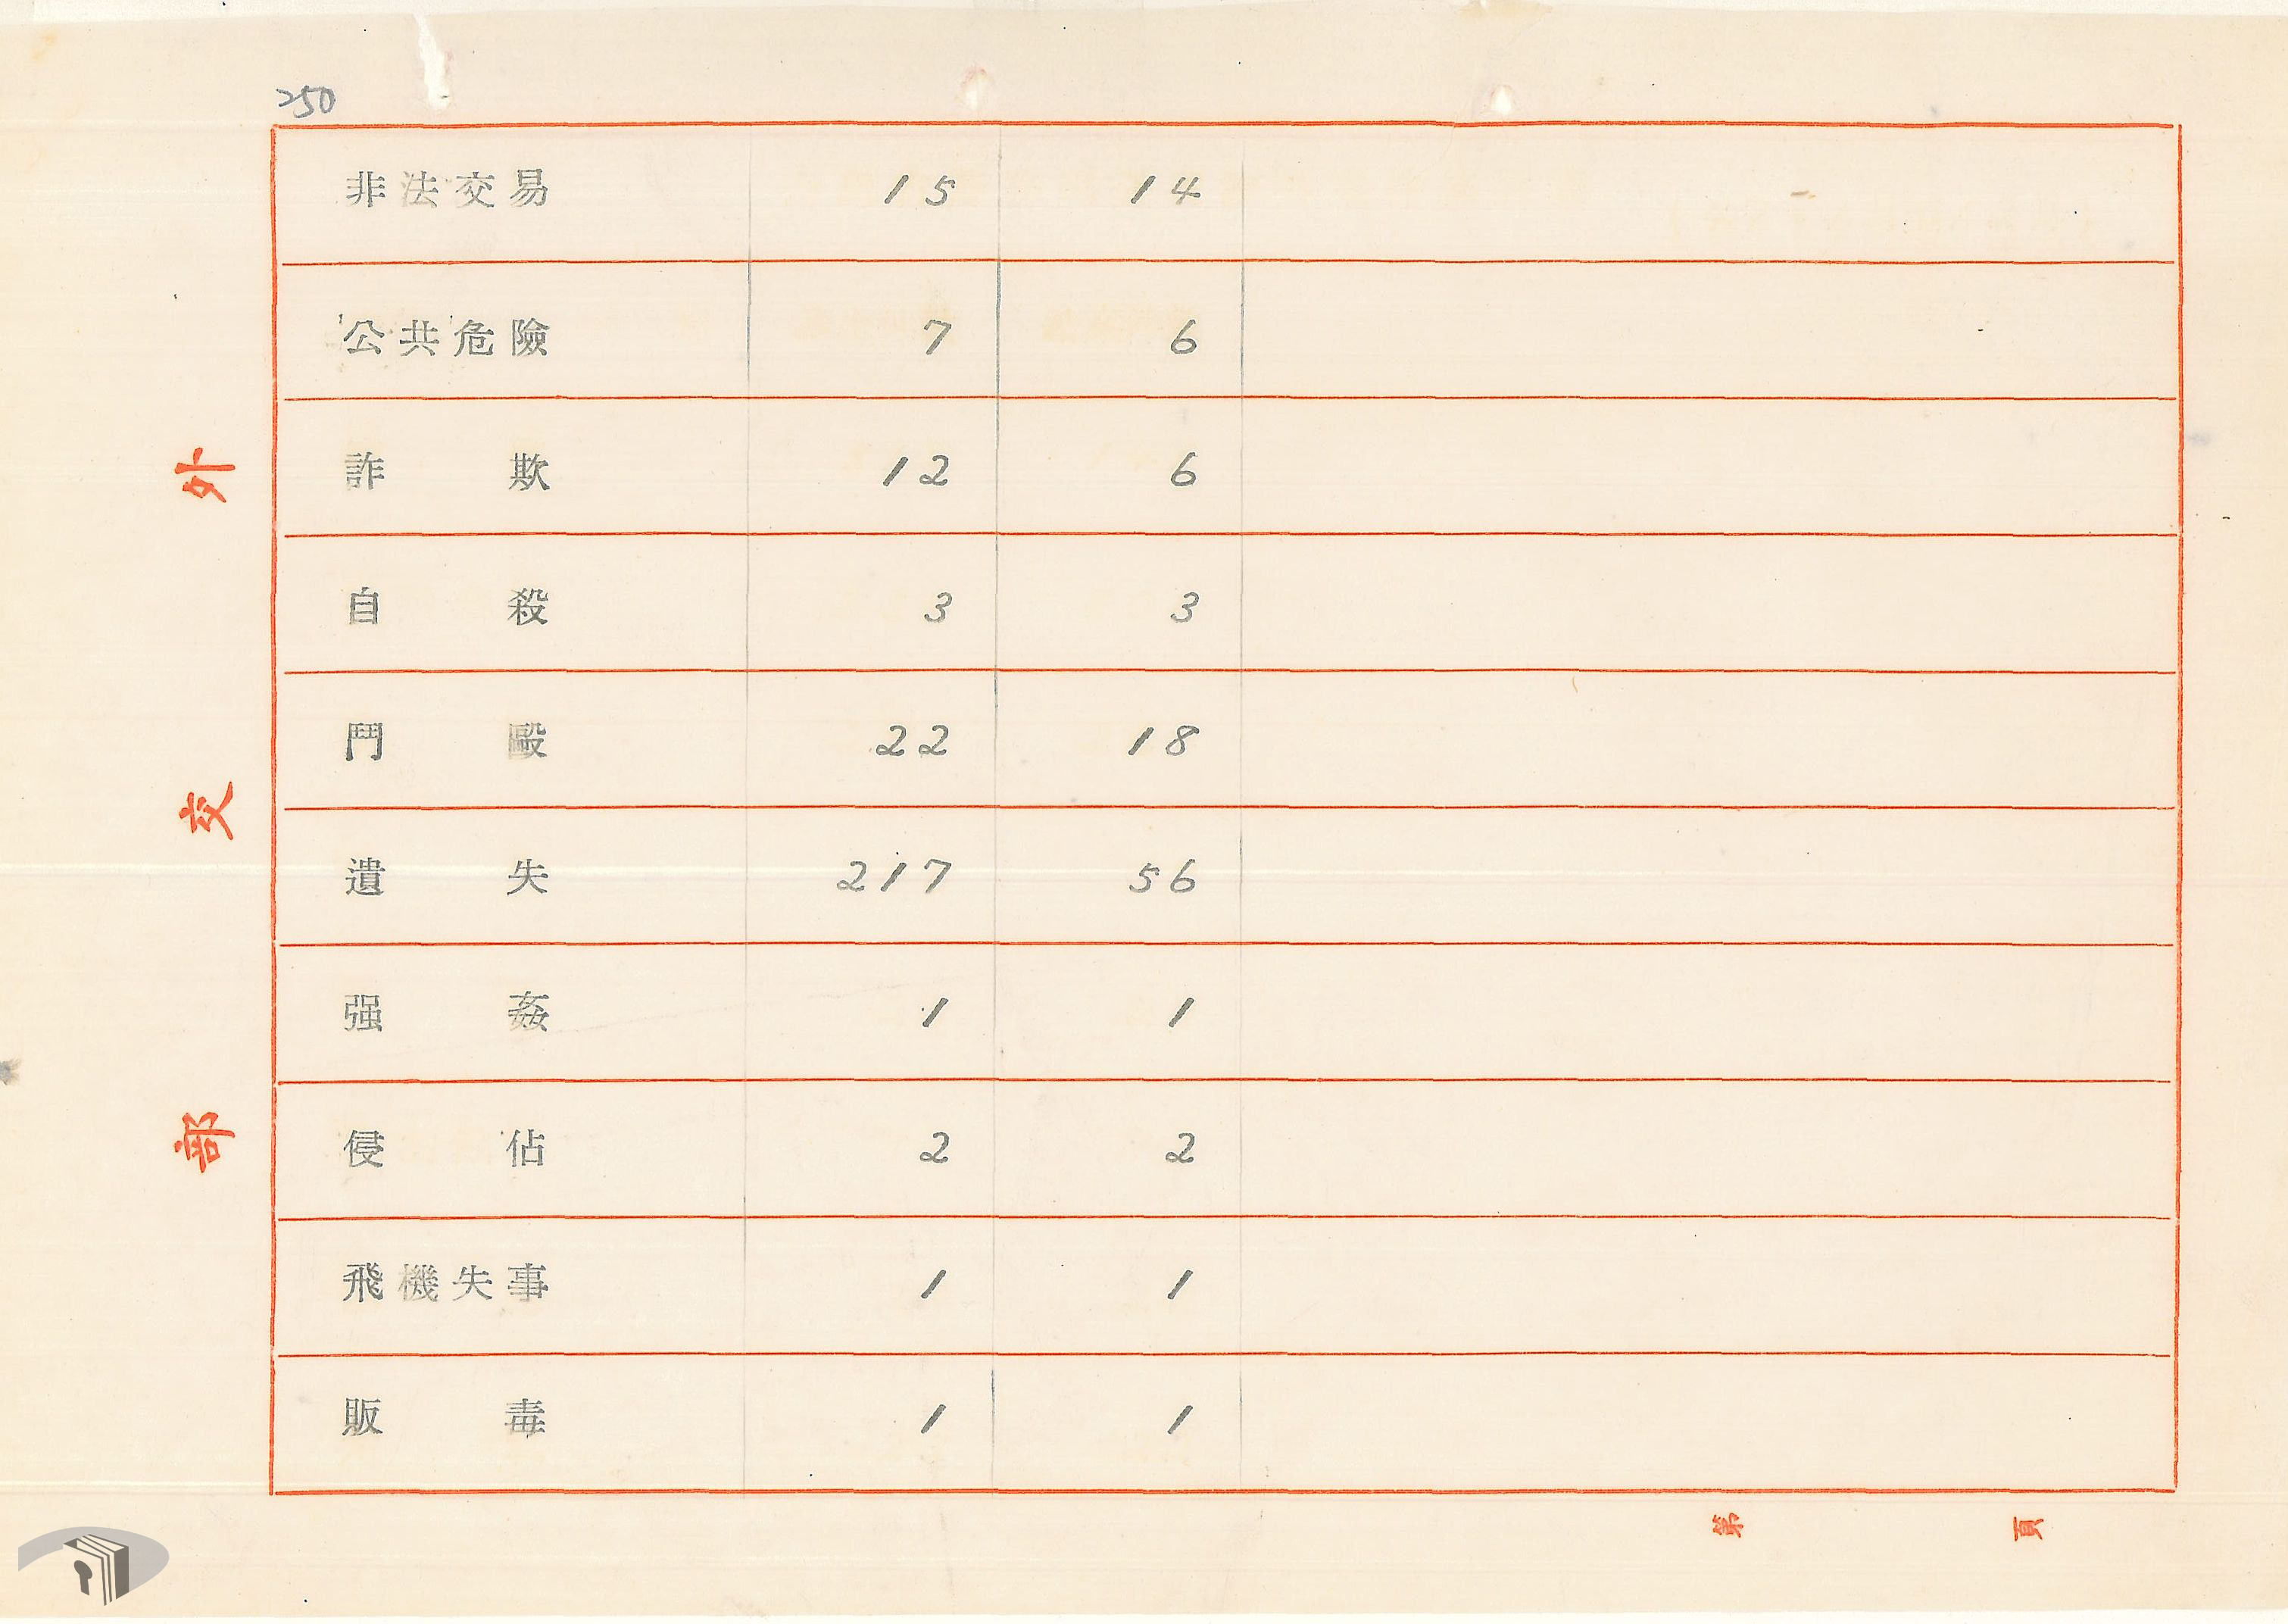 250
非法交易 15 14
公共危險 7 6
詐欺 12 6
自殺 3 3
鬥毆 22 18
遺失 217 56
强姦 1 1
侵佔 2 2
飛機失事 1 1
販毒 1 1
外交部
第 頁